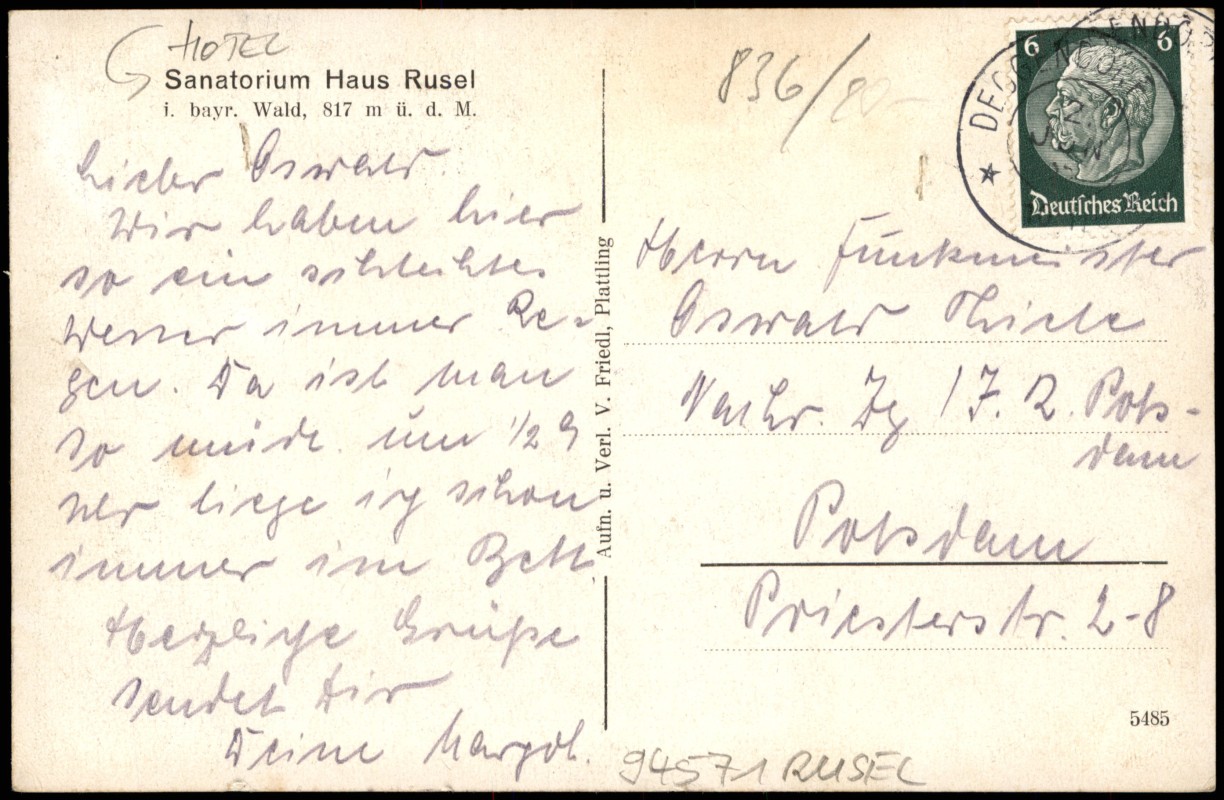 HOTEL
Sanatorium Haus Rusel
i. bayr. Wald, 817 m ü. d. M.
Lieber Oswald.
Wir haben hier
so ein schlechtes
Wetter immer Re-
gen. Da ist man
so müde um 1/2 9
Uhr liege ich schon
immer im Bett
Herzliche Grüße
sendet Dir
Deine
Aufn. u. Verl. V. Friedl, Plattling
836/
6 6
Deutsches Reich
DEGGENDORF
Herrn Funkmeister
Oswald Thiele
Nachr. Zg I.R. Pots-
dam
Potsdam
Priesterstr. 2-8
5485
94571 RUSEL